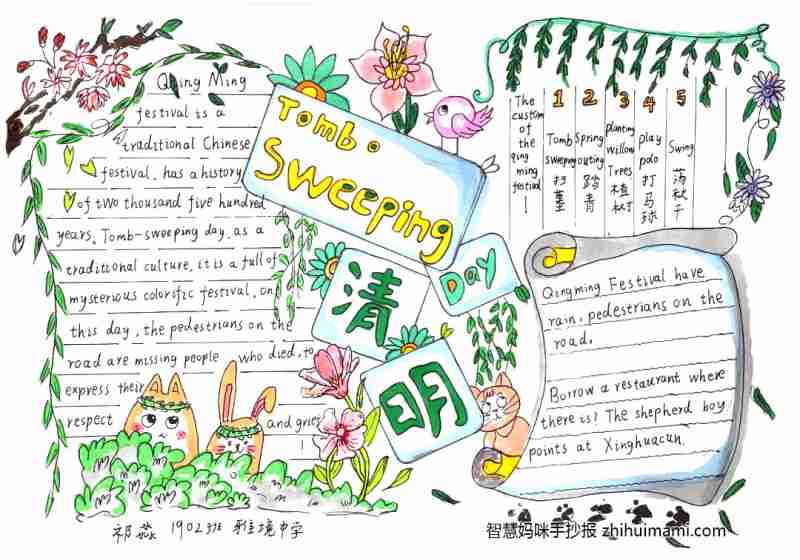 Qing Ming
festival is a
traditional Chinese
festival. has a history
of two thousand five hundred
years. Tomb-sweeping day. as a
traditional culture. it is a full of
mysterious colorific festival, on
this day, the pedestrians on the
road are missing people who died, to
express their
respect and grief
Tomb
Sweeping
Day
清
明
The
custom
of the
qing
ming
festival
1
Tomb
sweeping
扫
墓
2
Spring
outing
踏
青
3
planting
willow
Trees
植
树
4
Play
polo
打
马
球
5
Swing
荡
秋
千
Qingming Festival have
rain. pedestrians on the
road.
Borrow a restaurant where
there is? The shepherd boy
points at Xinghuacun.
祁燕 1902班 雅境中学
智慧妈咪手抄报 zhihuimami.com